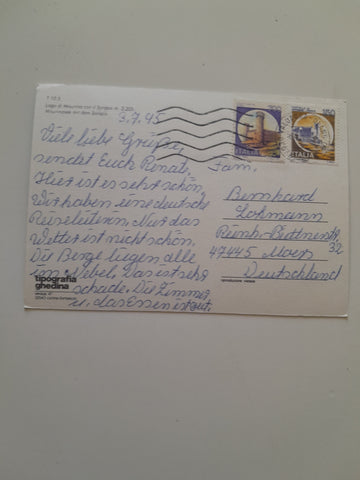 Lago di Misurina con il Sorapis m. 3.205
Misurinasee mit dem Sorapis
3.7.95
Viele liebe Grüße,
sendet Euch Renate,
Hier ist es sehr schön,
Wir haben eine deutsche
Reiseleiterin, Nur das
Wetter ist nicht schön,
Die Berge liegen alle
im Nebel, Das ist sehr
schade, Die Zimmer
u, das Essen ist gut,
Fam,
Bernhard
Lohmann
32
47445 Moers
Deutschland
ITALIA
ITALIA
tipografia
ghedina
riproduzione vietata